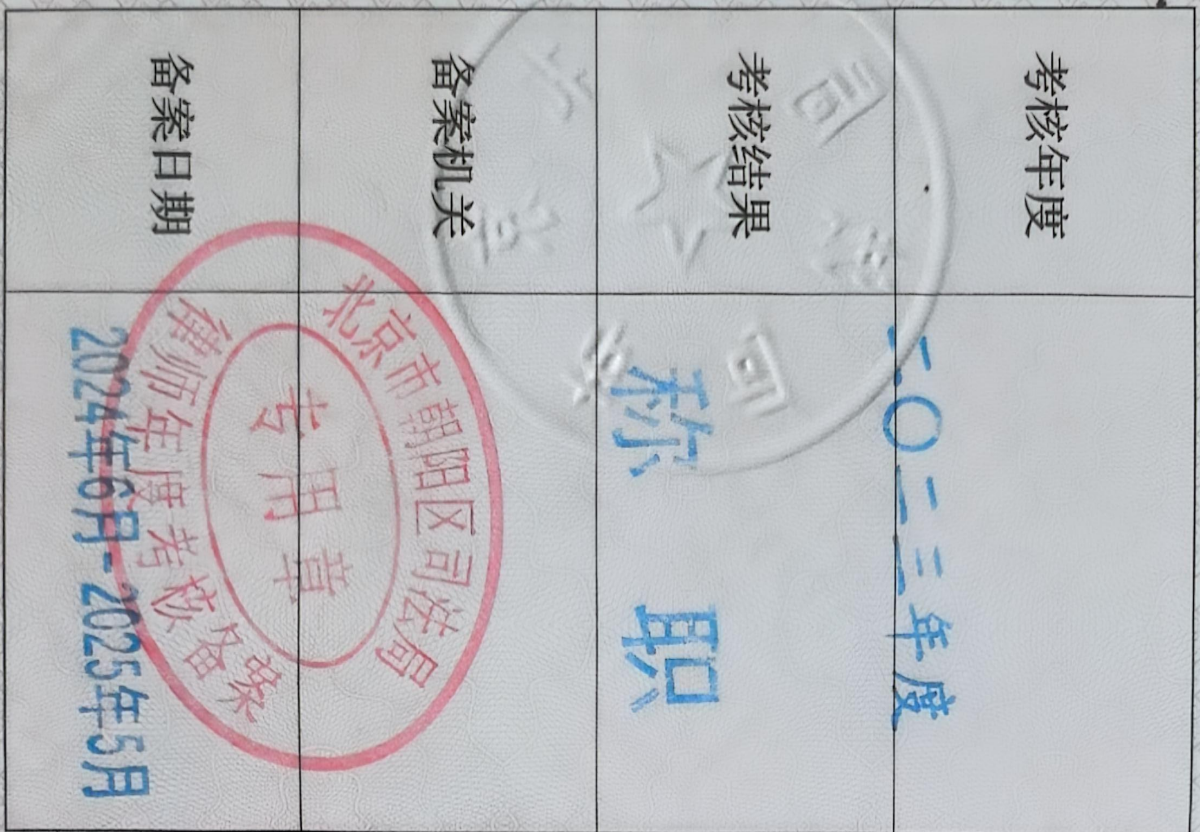 考核年度
二〇二三年度
考核结果
称职
备案机关
北京市朝阳区司法局
专用章
律师年度考核备案
备案日期
2024年6月-2025年5月